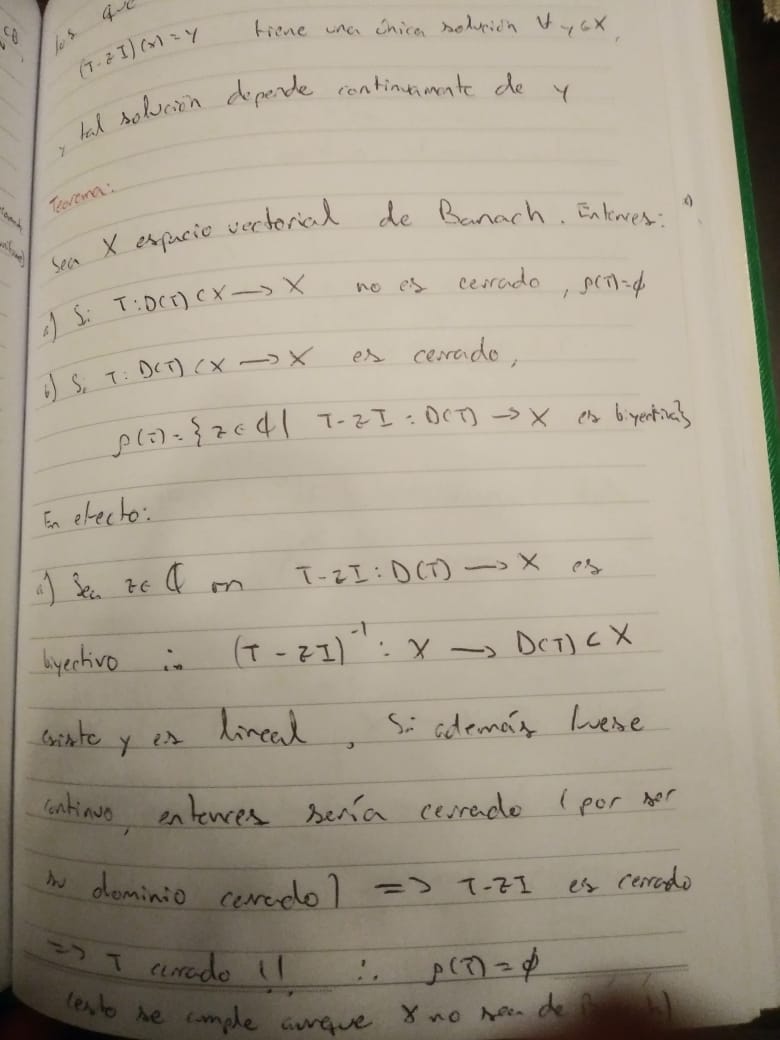 los que
(T-zI)(x)=y tiene una única solución ∀ y∈X,
y tal solución depende continuamente de y
Teorema:
Sea X espacio vectorial de Banach. Entonces:
a) Si T:D(T)⊂X→X no es cerrado, ρ(T)=∅
b) Si T:D(T)⊂X→X es cerrado,
ρ(T)={z∈ℂ| T-zI:D(T)→X es biyectiva}
En efecto:
a) Sea z∈ℂ en T-zI:D(T)→X es
biyectivo ∴ (T-zI)⁻¹:X→D(T)⊂X
existe y es lineal, Si además fuese
continuo, entonces sería cerrado (por ser
su dominio cerrado) => T-zI es cerrado
=> T cerrado !! ∴ ρ(T)=∅
(esto se cumple aunque X no sea de Banach)